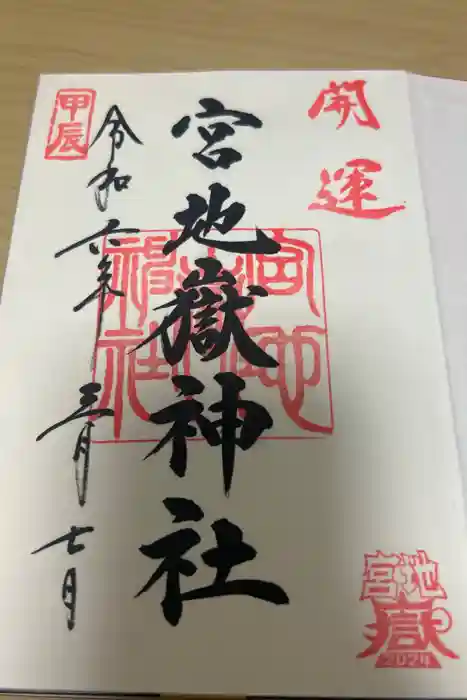 開運
宮地嶽神社
宮地嶽神社
令和六年 三月七日
甲辰
宮地嶽
2024